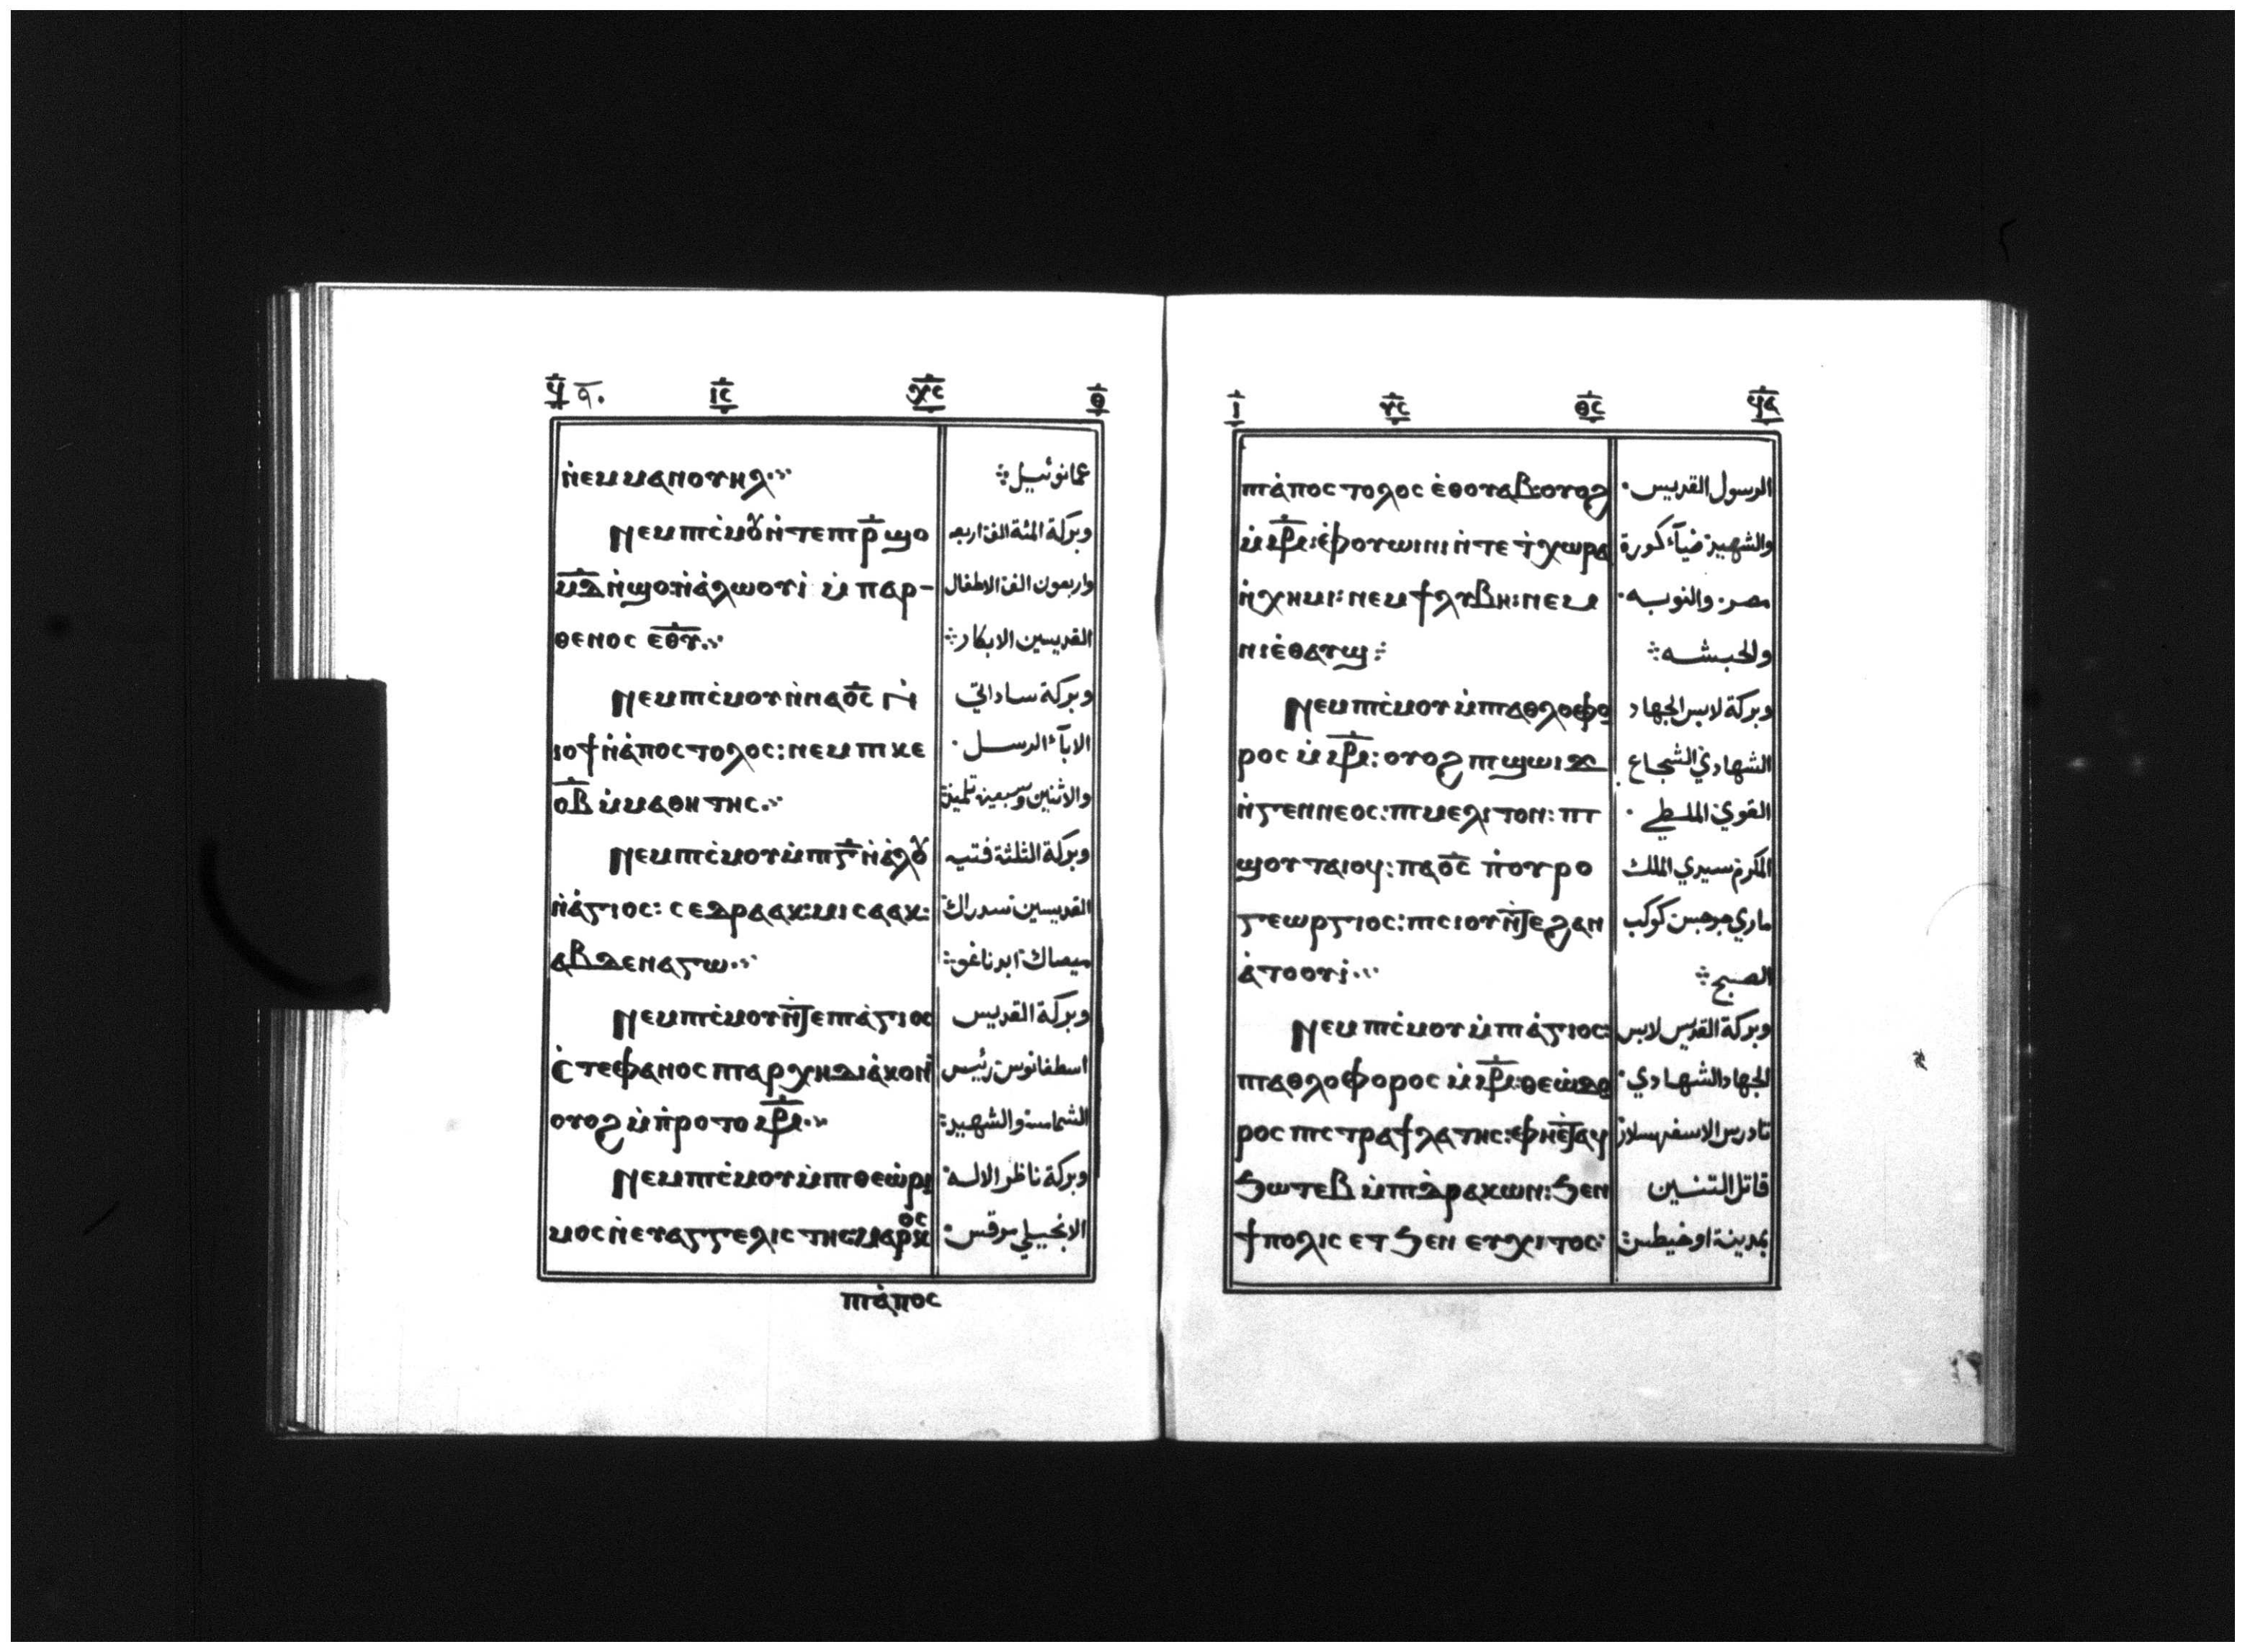 ϥ̅ ٩٠ ⲓ̅ⲥ̅ ⲭ̅ⲥ̅ ⲑ̅
ⲛ̇ⲉⲙⲙⲁⲛⲟⲩⲏⲗ⁘ عمانوئيل⁘
Ⲛⲉⲙⲡⲓⲥ̇ⲙⲟⲩⲛ̇ⲧⲉⲡⲓⲣ̅ϣⲟ وبركة المئة الف اربعه
ⲙ̅ⲇ̅ⲛ̇ϣⲟ:ⲛ̇ⲁ̇ⲗⲱⲟⲩⲓ̇ ⲙ̇ⲡⲁⲣ- واربعون الف الاطفال
ⲑⲉⲛⲟⲥ ⲉ̅ⲑ̅ⲩ̅⁘ القديسين الابكار⁘
Ⲛⲉⲙⲡⲓⲥ̇ⲙⲟⲩⲛ̇ⲛⲁⲟ̅ⲥ̅ ⲛ̇ وبركة ساداتي
ⲓⲟϯⲛ̇ⲁ̇ⲡⲟⲥⲧⲟⲗⲟⲥ: ⲛⲉⲙⲡⲓⲕⲉ الابآء الرسل ·
ⲟ̅ⲃ̅ ⲙ̇ⲙⲁⲑⲏⲧⲏⲥ⁘ والاثنين وسبعين تلميذ⁘
Ⲛⲉⲙⲡⲓⲥ̇ⲙⲟⲩⲙ̇ⲡⲓⲅ̅ⲛ̇ⲁ̇ⲗⲟⲩ وبركة الثلثة فتيه
ⲛ̇ⲁ̇ⲅⲓⲟⲥ: ⲥⲉⲇⲣⲁⲁⲕ:ⲙⲓⲥⲁⲁⲕ: القديسين سدراك
ⲁⲃⲇⲉⲛⲁⲅⲱ⁘ ميصاك ابدناغو⁘
Ⲛⲉⲙⲡⲓⲥ̇ⲙⲟⲩⲛ̇ϫⲉⲡⲓⲁ̇ⲅⲓⲟⲥ وبركة القديس
ⲥ̇ⲧⲉⲫⲁⲛⲟⲥ ⲡⲓⲁⲣⲭⲏⲇⲓⲁ̇ⲕⲟⲛ̇ اسطفانوس رئيس
ⲟⲩⲟϩ ⲙ̇ⲡ̇ⲣⲟⲧⲟⲙ̅ⲣ̅⁘ الشمامسة والشهيد⁘
Ⲛⲉⲙⲡⲓⲥ̇ⲙⲟⲩⲙ̇ⲡⲓⲑⲉⲱ̇ⲣⲓ وبركة ناظر الاله
ⲙⲟⲥ ⲛ̇ⲉⲩⲁⲅⲅⲉⲗⲓⲥⲧⲏⲥ:ⲙⲁⲣⲕⲟⲥ الانجيلي مرقس·
ⲡⲓⲁ̇ⲡⲟⲥ
ⲓ̅ ⲩ̅ⲥ̅ ⲑ̅ⲥ̅ ϥ̅ⲁ̅
ⲡⲓⲁ̇ⲡⲟⲥⲧⲟⲗⲟⲥ ⲉ̇ⲑⲟⲩⲁⲃ:ⲟⲩⲟϩ الرسول القديس·
ⲙ̇ⲙ̅ⲣ̅:ⲉ̇ⲫⲟⲩⲱⲓⲛⲓ ⲛ̇ⲧⲉ ϯⲭⲱⲣⲁ والشهيد ضيآء كورة
ⲛ̇ⲭⲏⲙⲓ: ⲛⲉⲙϯⲗⲩⲃⲏ: ⲛⲉⲙ مصر· والنوبه·
ⲛⲓⲉ̇ⲑⲁⲩϣ⁘ والحبشه⁘
Ⲛⲉⲙⲡⲓⲥ̇ⲙⲟⲩⲙ̇ⲡⲓⲁⲑⲗⲟⲫⲟ وبركة لابس الجهاد
ⲣⲟⲥ ⲙ̇ⲙ̅ⲣ̅: ⲟⲩⲟϩ ⲡⲓϣⲱⲓϫ الشهادي الشجاع
ⲛ̇ⲅⲉⲛⲛⲉⲟⲥ: ⲡⲓⲙⲉⲗⲓⲧⲟⲛ: ⲡⲓ القوي الملطي ·
ϣⲟⲩⲧⲁⲓⲟⲩ: ⲡⲁⲟ̅ⲥ̅ ⲡ̇ⲟⲩⲣⲟ المكرم سيدي الملك
ⲅⲉⲱⲣⲅⲓⲟⲥ: ⲡⲓⲥⲓⲟⲩⲛ̇ϫⲉϩⲁⲛ ماري جرجس كوكب
ⲁ̇ⲧⲟⲟⲩⲓ̇⁘ الصبح⁘
Ⲛⲉⲙⲡⲓⲥ̇ⲙⲟⲩⲙ̇ⲡⲓⲁ̇ⲅⲓⲟⲥ: وبركة القديس لابس
ⲡⲓⲁⲑⲗⲟⲫⲟⲣⲟⲥ ⲙ̇ⲙ̅ⲣ̅:ⲑⲉⲱ̇ⲇⲟ الجهاد الشهادي·
ⲣⲟⲥ ⲡⲓⲥⲧⲣⲁϯⲗⲁⲧⲏⲥ: ⲫⲏⲉ̇ⲧⲁϥ تادرس الاسفهسلار
ϧⲱⲧⲉⲃ ⲙ̇ⲡⲓⲇ̇ⲣⲁⲕⲱⲛ: ϧⲉⲛ قاتل التنين
ϯⲡⲟⲗⲓⲥ ⲉⲧ ϧⲉⲛ ⲉⲩⲭⲓⲧⲟⲥ: بمدينة اوخيطس⁘